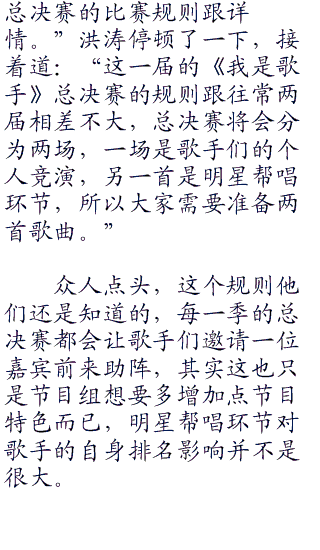 总决赛的比赛规则跟详
情。”洪涛停顿了一下，接
着道：“这一届的《我是歌
手》总决赛的规则跟往常两
届相差不大，总决赛将会分
为两场，一场是歌手们的个
人竞演，另一首是明星帮唱
环节，所以大家需要准备两
首歌曲。”
众人点头，这个规则他
们还是知道的，每一季的总
决赛都会让歌手们邀请一位
嘉宾前来助阵，其实这也只
是节目组想要多增加点节目
特色而已，明星帮唱环节对
歌手的自身排名影响并不是
很大。